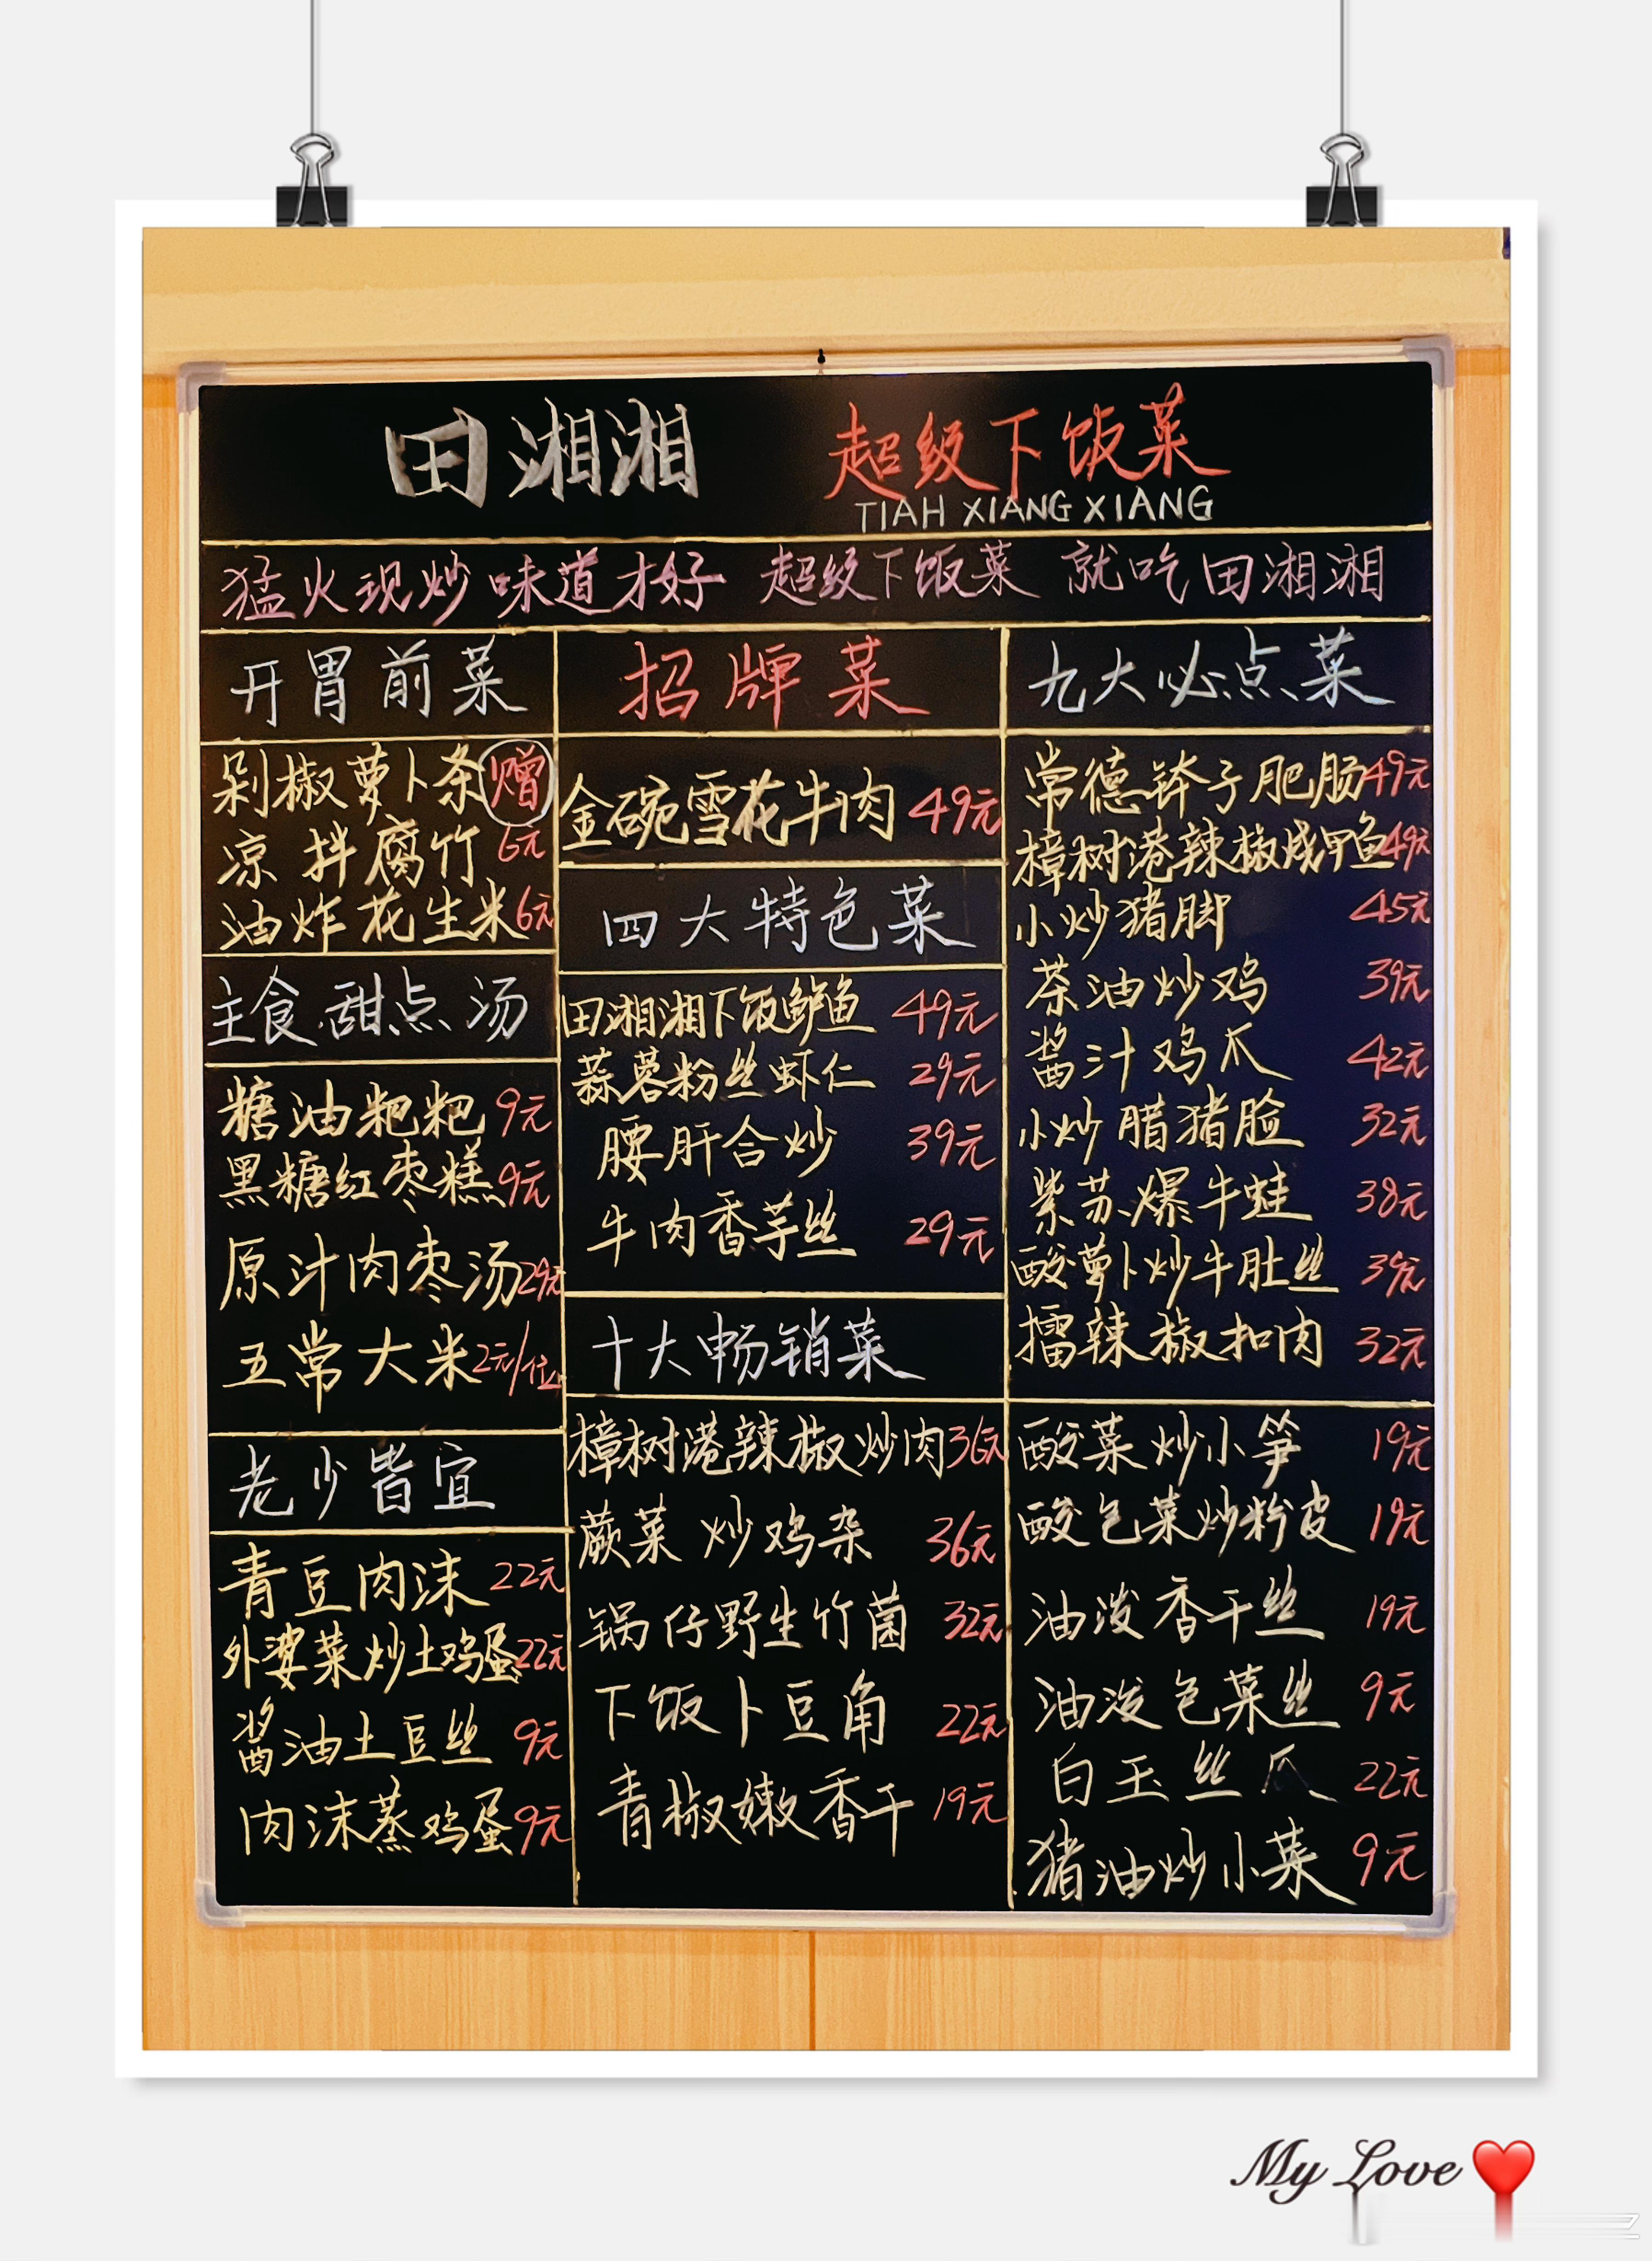 田湘湘 超级下饭菜
TIAH XIANG XIANG
猛火现炒 味道才好 超级下饭菜 就吃田湘湘
开胃前菜
剁椒萝卜条 赠
凉拌腐竹 6元
油炸花生米 6元
主食.甜点.汤
糖油粑粑 9元
黑糖红枣糕 9元
原汁肉枣汤 29元
五常大米 2元/位
老少皆宜
青豆肉沫 22元
外婆菜炒土鸡蛋 22元
酱油土豆丝 9元
肉沫蒸鸡蛋 9元
招牌菜
金碗雪花牛肉 49元
四大特色菜
田湘湘下饭鲈鱼 49元
蒜蓉粉丝虾仁 29元
腰肝合炒 39元
牛肉香芋丝 29元
十大畅销菜
樟树港辣椒炒肉 36元
蕨菜炒鸡杂 36元
锅仔野生竹菌 32元
下饭卜豆角 22元
青椒嫩香干 19元
九大必点菜
常德钵子肥肠 49元
樟树港辣椒烧甲鱼 49元
小炒猪脚 45元
茶油炒鸡 39元
酱汁鸡爪 42元
小炒腊猪脸 32元
紫苏爆牛蛙 38元
酸萝卜炒牛肚丝 39元
擂辣椒扣肉 32元
酸菜炒小笋 19元
酸包菜炒粉皮 19元
油泼香干丝 19元
油泼包菜丝 9元
白玉丝瓜 22元
猪油炒小菜 9元
My Love ❤